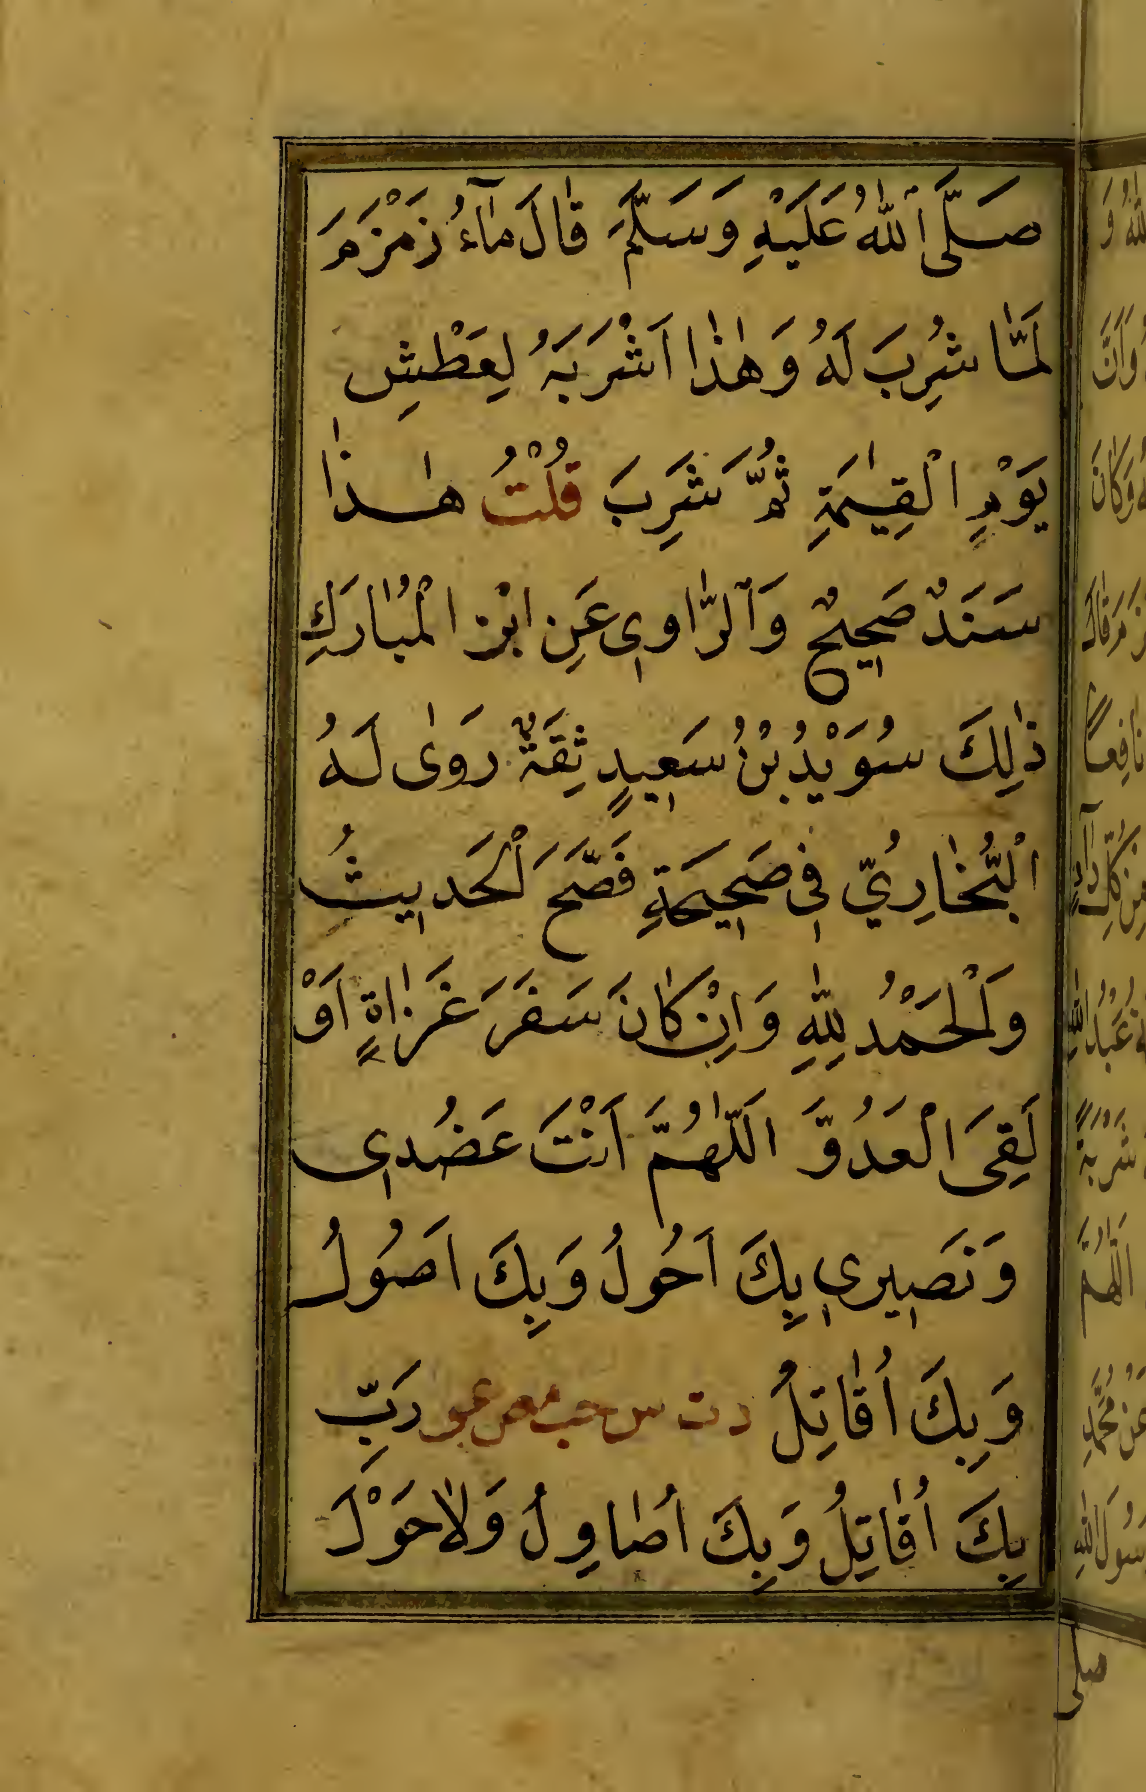 صَلَّى اللّٰهُ عَلَيْهِ وَسَلَّمَ قَالَ مَآءُ زَمْزَمَ
لَمَّا شُرِبَ لَهُ وَهٰذَا اَشْرَبَهُ لِعَطْشِ
يَوْمِ الْقِيٰمَةِ ثُمَّ شَرِبَ قُلْتُ هٰذَا
سَنَدٌ صَحِيحٌ وَالرَّاوِى عَنِ ابْنِ الْمُبَارَكِ
ذٰلِكَ سُوَيْدُ بْنُ سَعِيدٍ ثِقَةٌ رَوٰى لَهُ
الْبُخَارِيُّ فِى صَحِيحَةِ فَصَّحَ الْحَدِيثُ
وَالْحَمْدُ لِلّٰهِ وَاِنْ كَانَ سَفَرَ غَزَاةٍ اَوْ
لَقِىَ الْعَدُوَّ اَللّٰهُمَّ اَنْتَ عَضُدِى
وَنَصِيرِى بِكَ اَحُولُ وَبِكَ اَصُولُ
وَبِكَ اُقَاتِلُ د ت س حب مص عو رَبِّ
بِكَ اُقَاتِلُ وَبِكَ اُصَاوِلُ وَلَا حَوْلَ
صلى